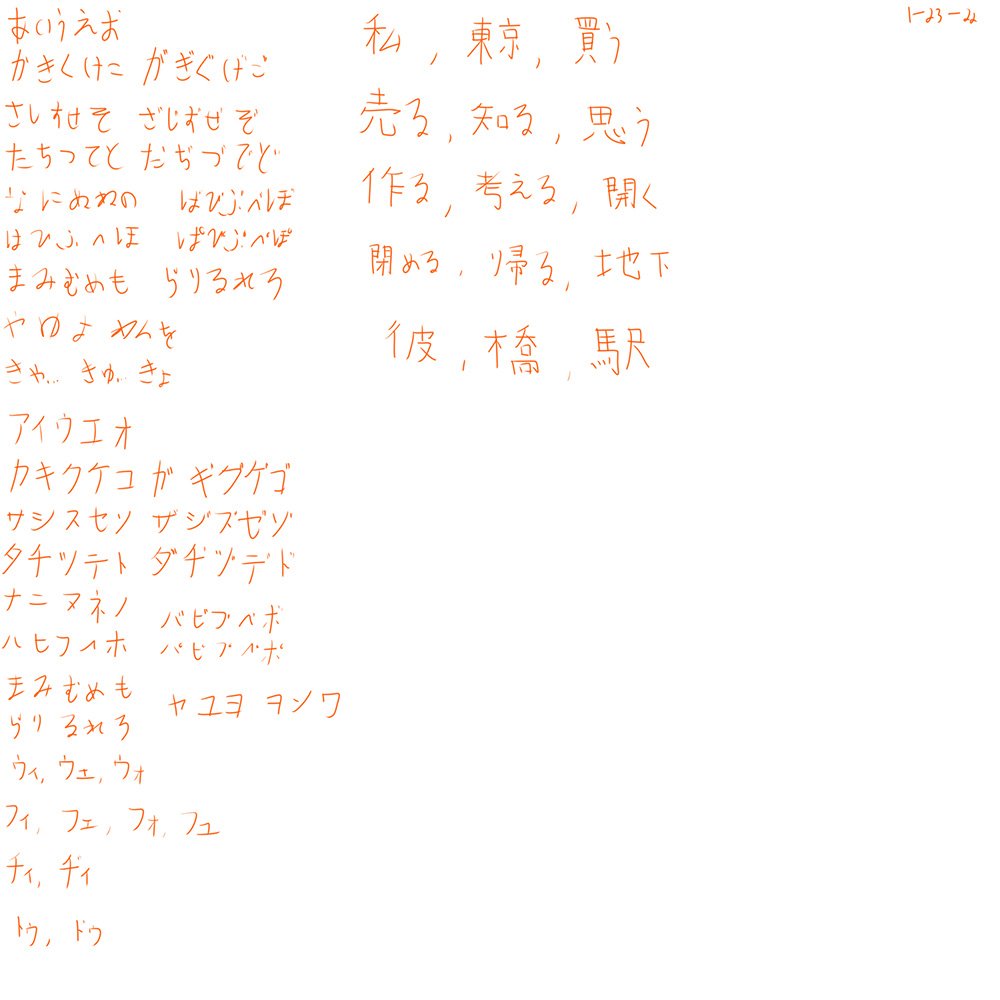 あいうえお
かきくけこ がぎぐげご
さしすせそ ざじずぜぞ
たちつてと だぢづでど
なにぬねの ばびぶべぼ
はひふへほ ぱぴぷぺぽ
まみむめも らりるれろ
やゆよ わんを
きゃ... きゅ... きょ
アイウエオ
カキクケコ ガギグゲゴ
サシスセソ ザジズゼゾ
タチツテト ダヂヅデド
ナニヌネノ バビブベボ
ハヒフヘホ パピプペポ
まみむめも ヤユヨ ヲンワ
らりるれろ
ウィ, ウェ, ウォ
フィ, フェ, フォ, フュ
チィ, ヂィ
トゥ, ドゥ
私, 東京, 買う
売る, 知る, 思う
作る, 考える, 開く
閉める, 帰る, 地下
彼, 橋, 駅
1-23-22